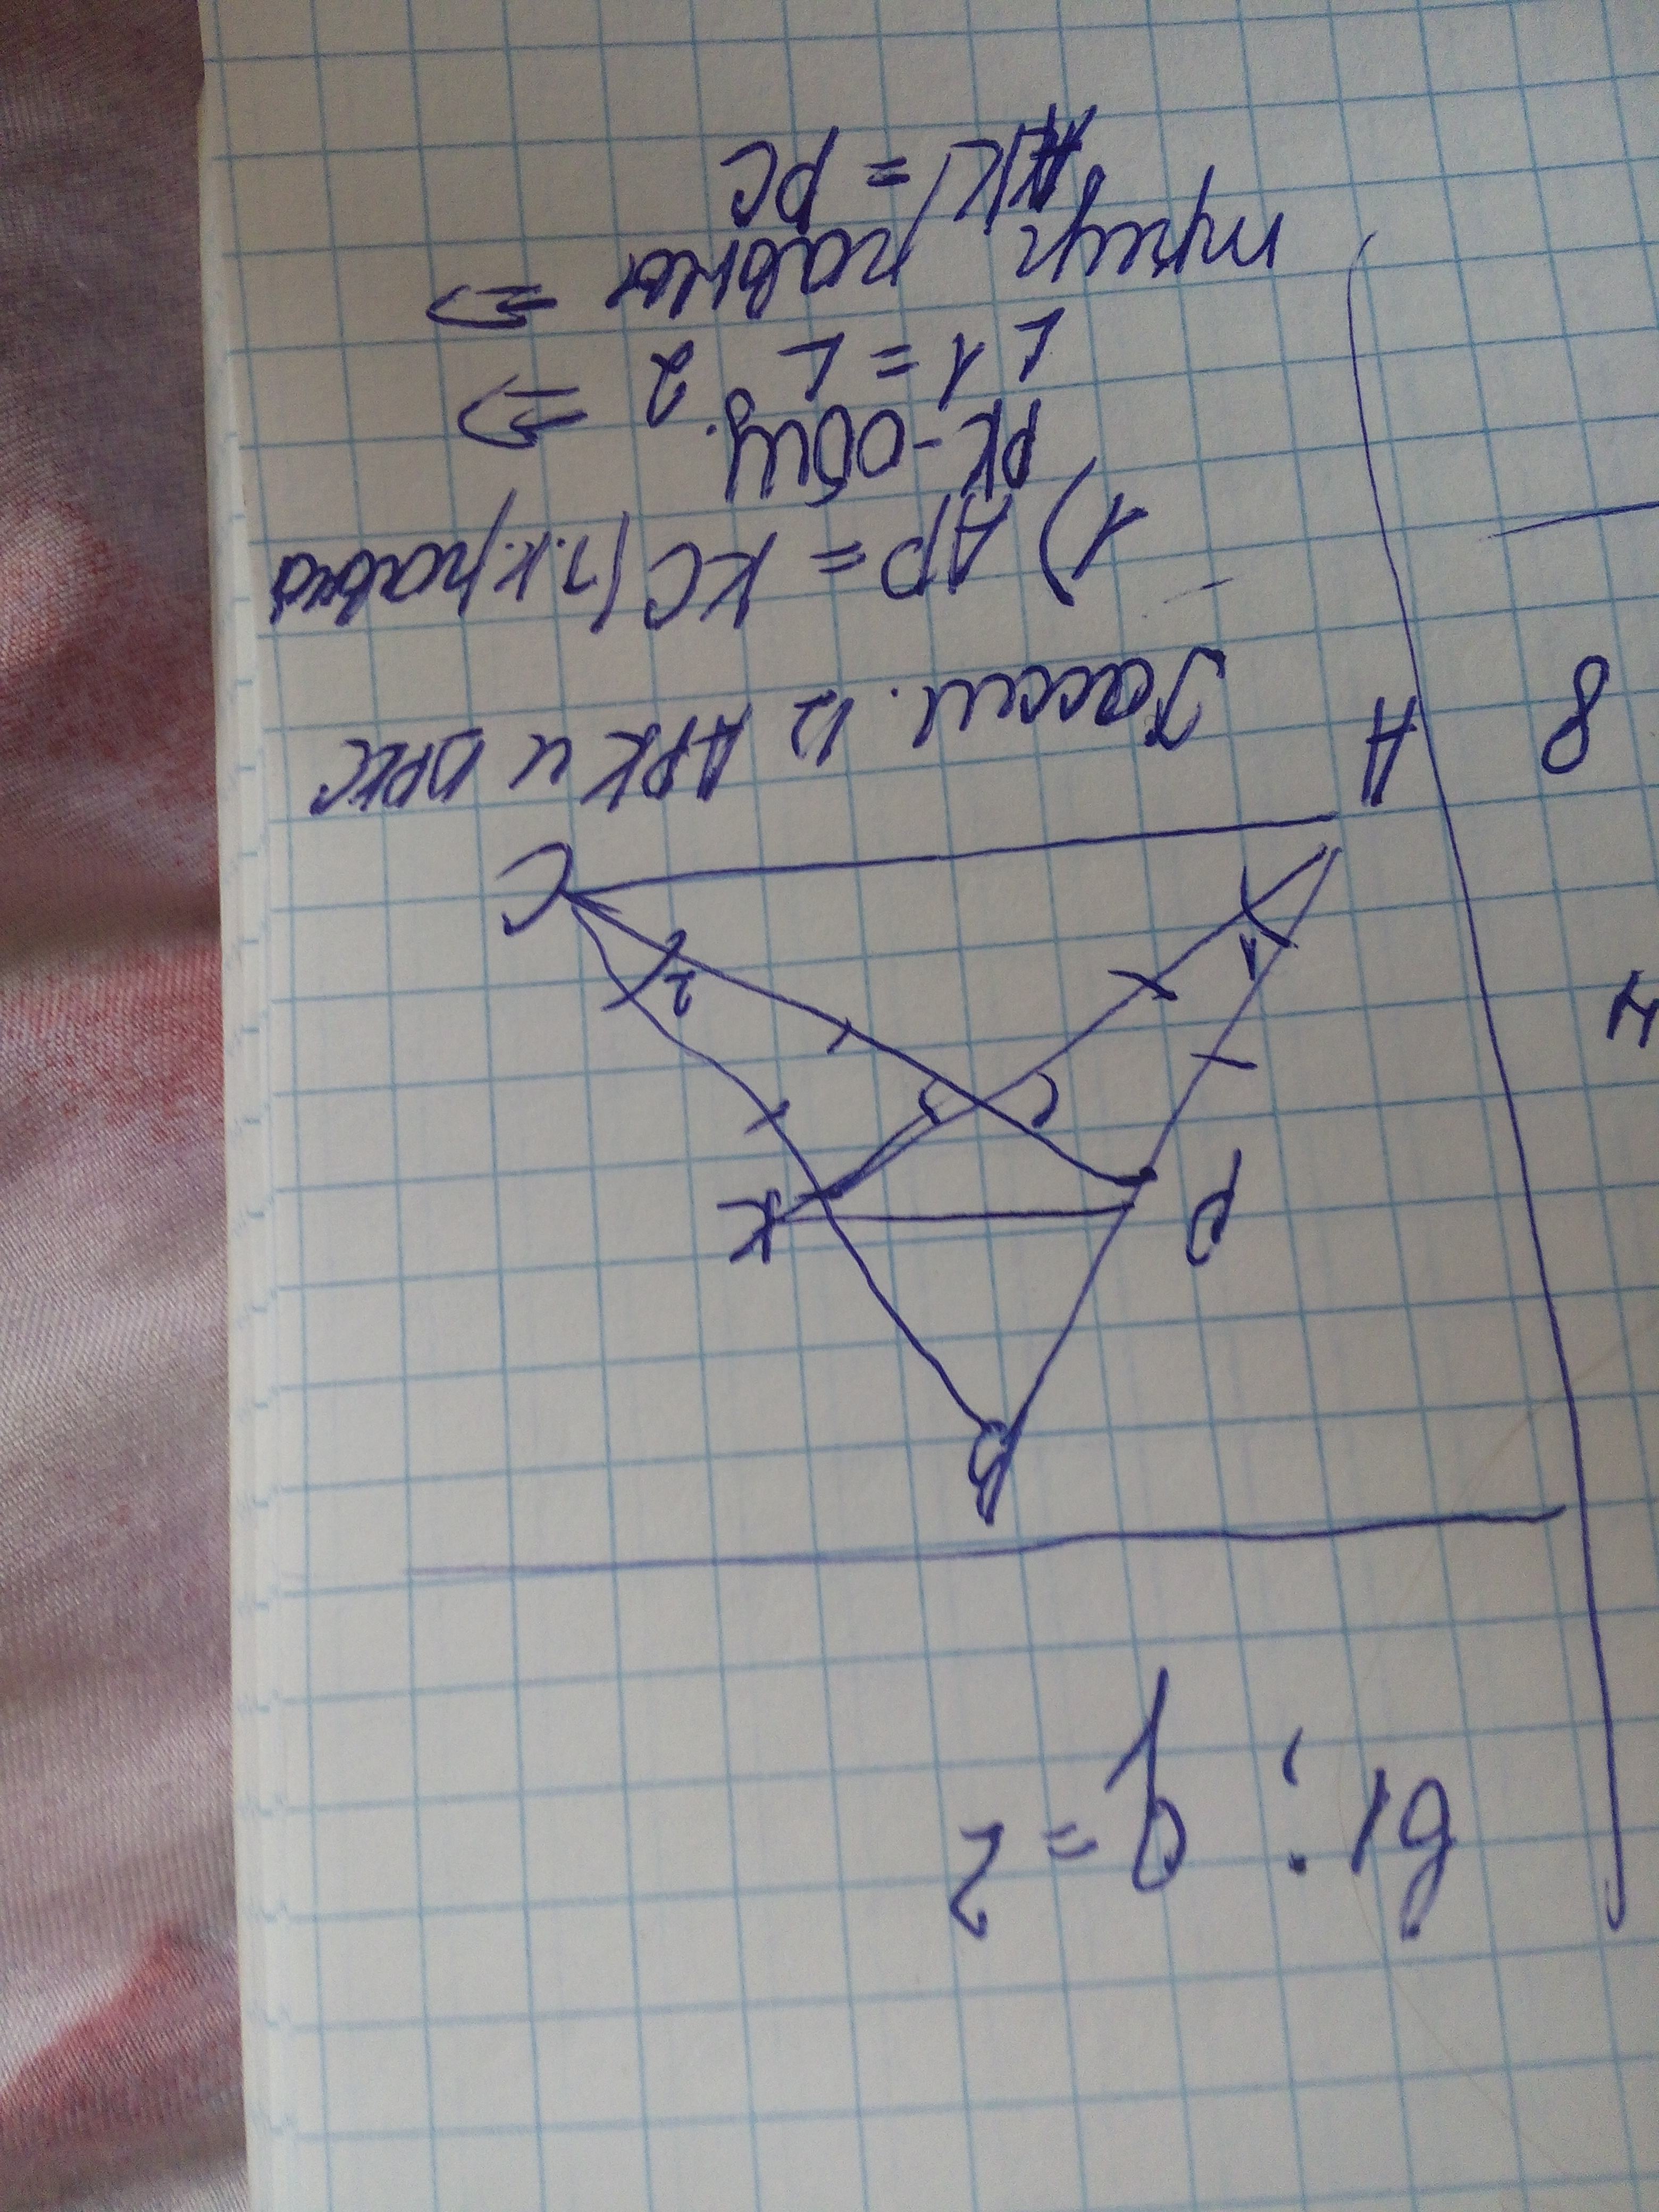 B1: q = 2
B
P K
1 2
A C
8
Рассм. Δ APK и ΔPKC
1) AP = KC (т.к. равно
PK - общ. ⇒
∠1 = ∠ 2
треуг равны ⇒
AK = PC